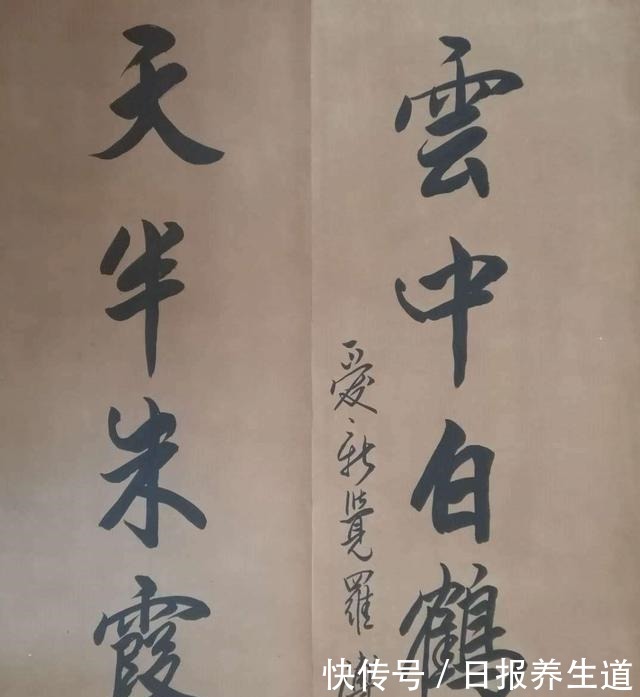 雲中白鶴
愛新覺羅
天半朱霞
快传号 / 日报养生道